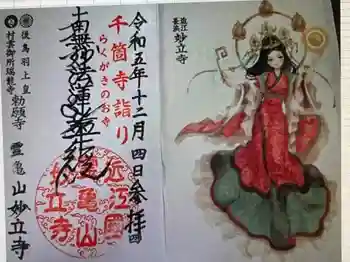 令和五年十二月四日参拝
千箇寺詣り
らくがきのお寺
南無妙法蓮華経
近江國
霊亀山
妙立寺
後鳥羽上皇勅願寺
村雲御所瑞龍寺
霊亀山妙立寺
近江
長浜
妙立寺